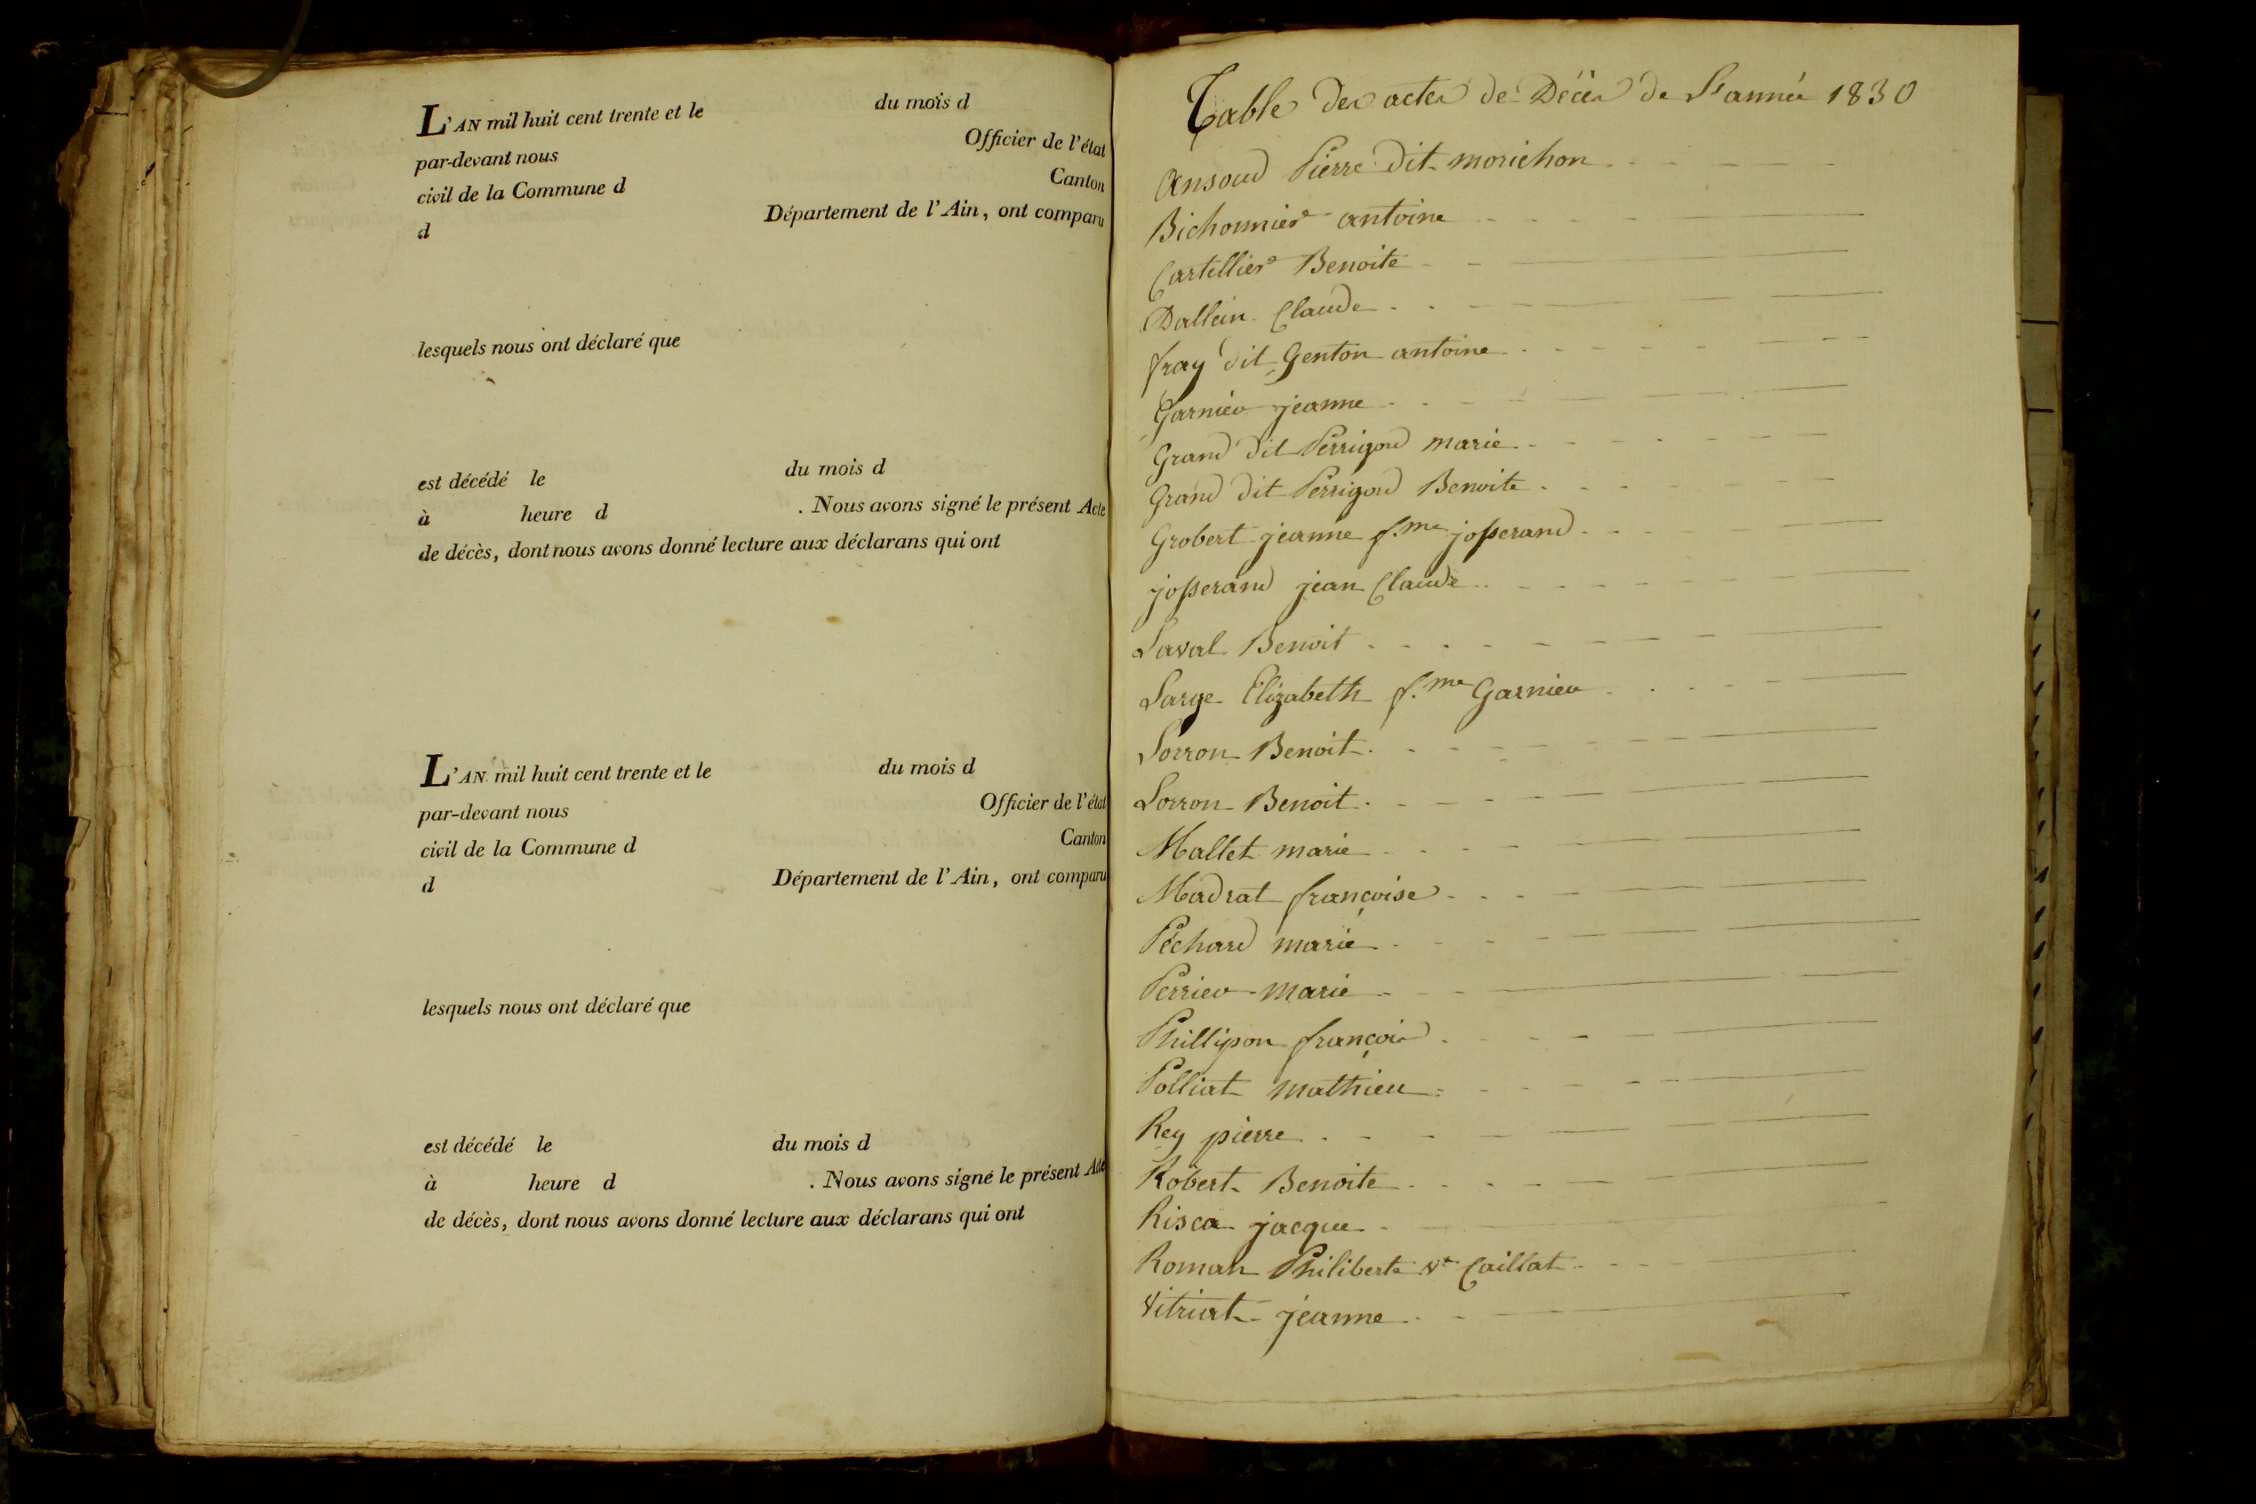 L'AN mil huit cent trente et le du mois d
par-devant nous Officier de l'état
civil de la Commune d Canton
d Département de l'Ain, ont comparu
lesquels nous ont déclaré que
est décédé le du mois d
à heure d . Nous avons signé le présent Acte
de décès, dont nous avons donné lecture aux déclarans qui ont
L'AN mil huit cent trente et le du mois d
par-devant nous Officier de l'état
civil de la Commune d Canton
d Département de l'Ain, ont comparu
lesquels nous ont déclaré que
est décédé le du mois d
à heure d . Nous avons signé le présent Acte
de décès, dont nous avons donné lecture aux déclarans qui ont
Table des actes de Décès de L'année 1830
Ansoud Pierre dit morichon
Bichonnier antoine
Cartellier Benoite
Dallein Claude
fray dit Genton antoine
Garnier jeanne
Grand dit Perrigord marie
Grand dit Perrigord Benoite
Grobert jeanne f.me josserand
josserand jean Claude
Laval Benoit
Large Elizabeth f.me Garnier
Lorron Benoit
Lorron Benoit
Mallet marie
Madrat françoise
Péchard marie
Perrier marie
Phillipon françois
Polliat mathieu
Rey pierre
Robert Benoite
Risca jacque
Roman Philiberte Ve Caillat
Vitriat jeanne